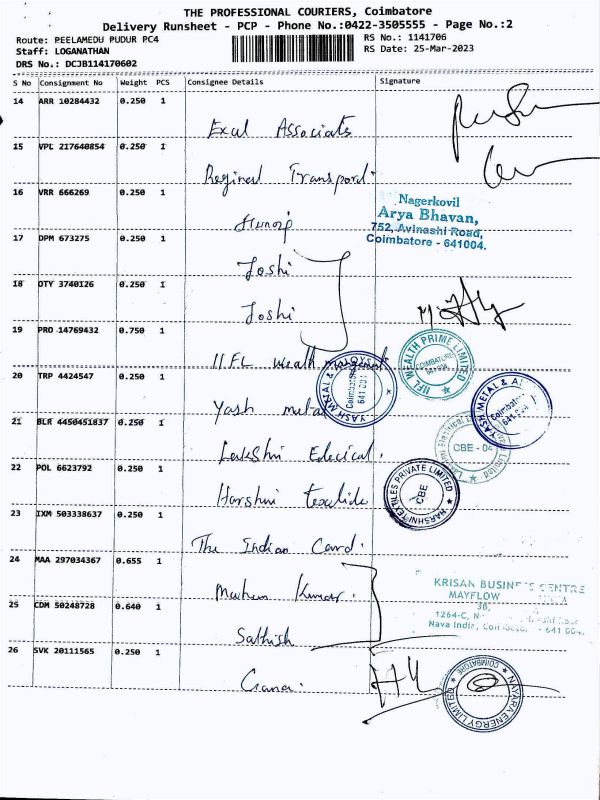 THE PROFESSIONAL COURIERS, Coimbatore
Delivery Runsheet - PCP - Phone No.:0422-3505555 - Page No.:2
Route: PEELAMEDU PUDUR PC4
Staff: LOGANATHAN
DRS No.: DCJB114170602
RS No.: 1141706
RS Date: 25-Mar-2023
S No Consignment No Weight PCS Consignee Details Signature
14 ARR 10284432 0.250 1
Excal Associates
15 VPL 217640854 0.250 1
Reginal Transport.
16 VRR 666269 0.250 1
Nagerkovil
Arya Bhavan,
752, Avinashi Road,
Coimbatore - 641004.
17 DPM 673275 0.250 1
Joshi
18 OTY 3740126 0.250 1
Joshi
19 PRO 14769432 0.750 1
IIFL Wealth
IIFL WEALTH PRIME LIMITED
COIMBATORE
20 TRP 4424547 0.250 1
Yash metal
YASH METAL &
Coimbatore
641 001
YASH METAL & A
Coimbat
21 BLR 4450451837 0.250 1
Lakshmi Electrical.
CBE - 04
22 POL 6623792 0.250 1
Harshni Textile
HARSHNI TEXTILES PRIVATE LIMITED
CBE
23 IXM 503338637 0.250 1
The Indian Card.
24 MAA 297034367 0.655 1
Kumar.
KRISAN BUSINESS CENTRE
MAYFLOW
1264-C,
Nava India, 641 004.
25 CDM 50248728 0.640 1
Sathish
26 SVK 20111565 0.250 1
NAYARA ENERGY LIMITED
COIMBATORE